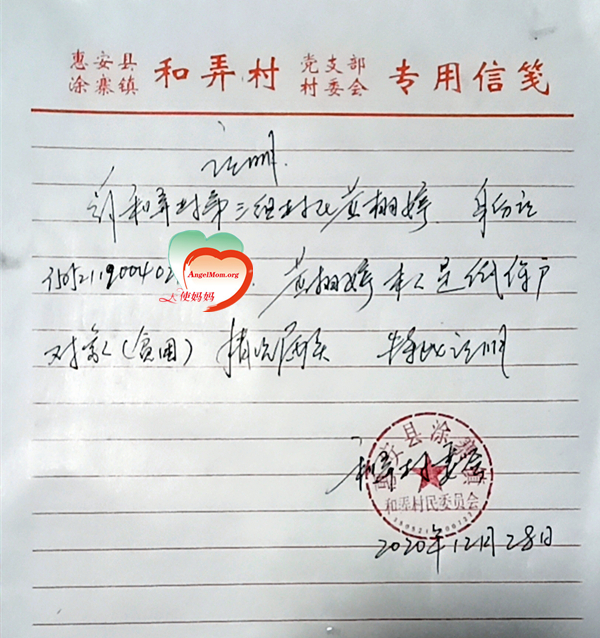 惠安县 和弄村 党支部 专用信笺
涂寨镇 村委会
证明
兹和弄村第三组村民黄栩婷 身份证
35052119900402 黄栩婷本人是低保户
AngelMom.org
天使妈妈
对象(贫困) 情况属实 特此证明
和弄村委会
惠安县涂寨镇
和弄村民委员会
2020年12月28日